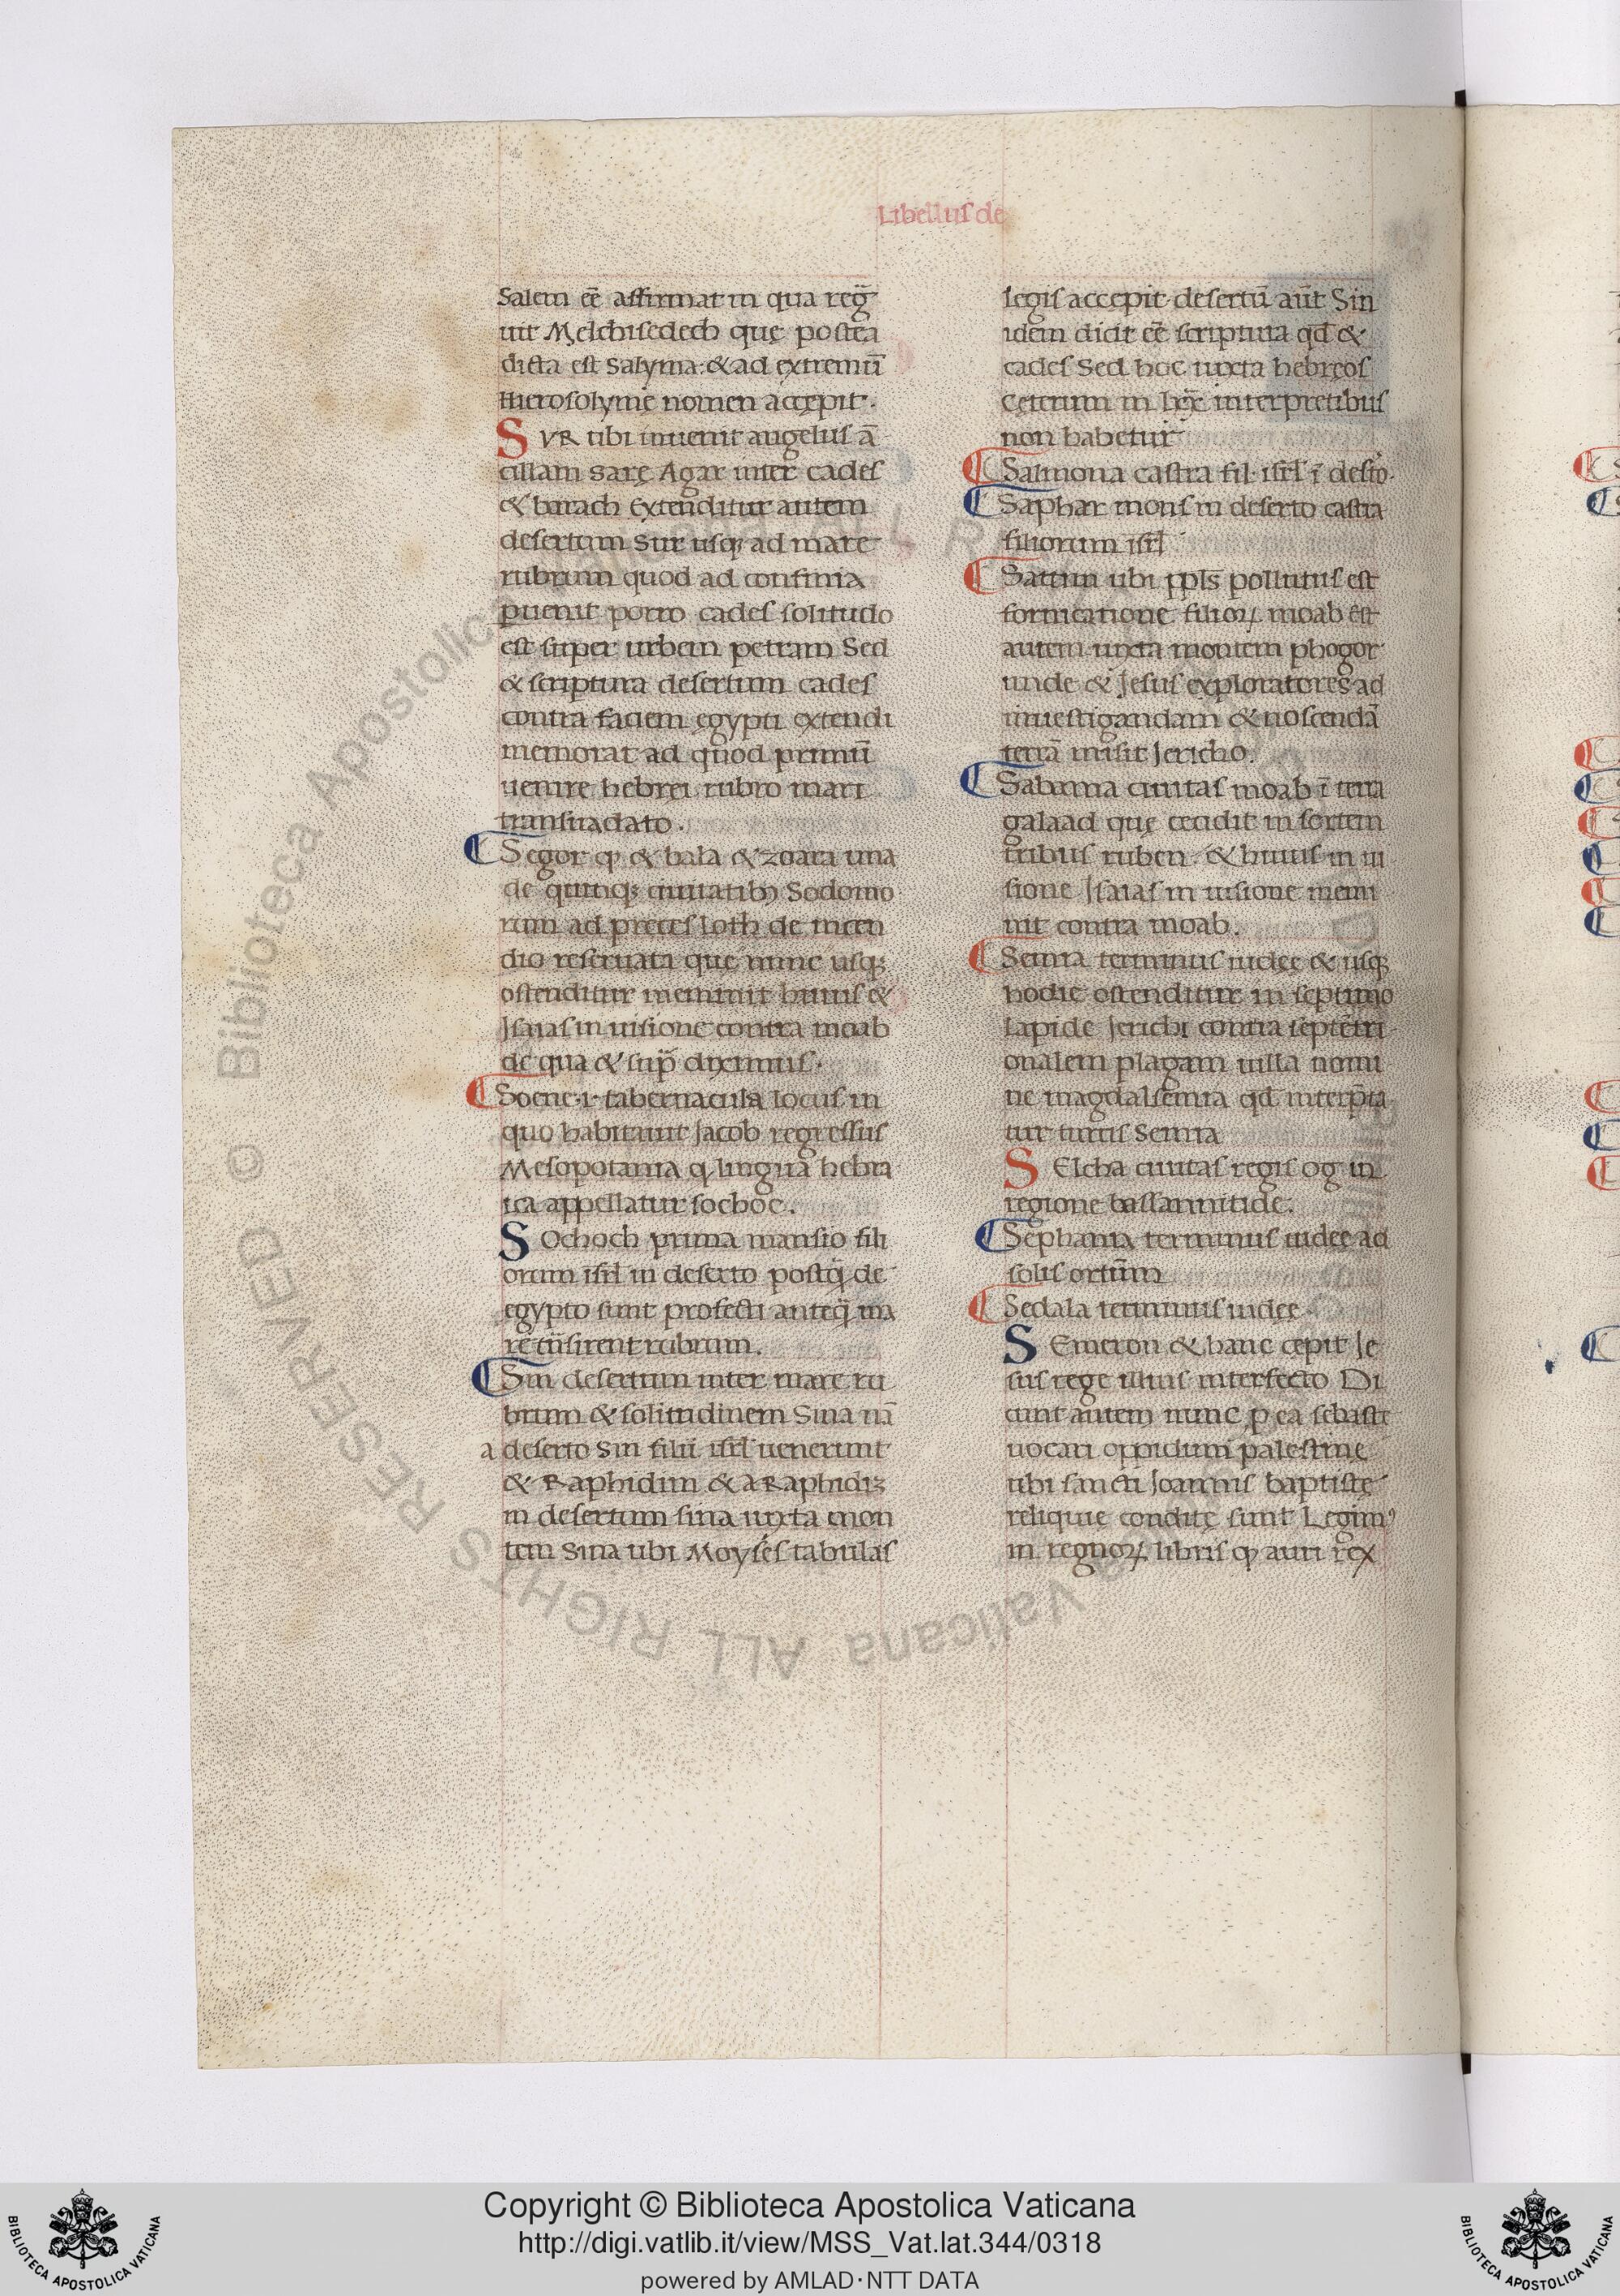 Libellus de
Salem eē affirmat in qua reg̃
uit Melchisedech quę postea
dicta est Salyma: & ad extremū
Hierosolyme nomen accępit.
SVR ubi inuenit angelus ā
cillam sarę Agar inter cades
& barach Extenditur autem
desertum Sur usq; ad mare
rubrum quod ad confinia
puenit porro cades solitudo
est super urbem petram Sed
& scriptura desertum cades
contra faciem ęgypti extendi
memorat ad quod primū
uenire hebrei rubro mari
transuadato.
Segor q & bala & zoara una
de quinq; ciuitatib; Sodomo
rum ad preces loth de incen
dio reseruata quę nunc usq;
ostenditur meminit huius &
Isaias in uisione contra moab
de qua & sup̄ diximus.
Soene .i. tabernacula locus in
quo habitauit Jacob regressus
Mesopotamia q lingua hebra
ica appellatur sochoc.
SOchoch prima mansio fili
orum isrl in deserto postq̄ de
egypto sunt profecti anteq̄ ma
re tn̄sirent rubrum.
Sin desertum inter mare ru
brum & solitudinem Sina nā
a deserto Sin filii isrl uenerunt
& Raphidim & a Raphidiz
in desertum sina iuxta mon
tem Sina ubi Moyses tabulas
legis accępit desertū aūt Sin
idem dicit eē scriptura qd̄ &
cades Sed hoc iuxta hebręos
Cęterum in lxx interpretibus
non habetur
Salmona castra fil. isrl ī des̄to.
Saphar mons in deserto castra
filiorum isrl
Sattim ubi ppls̄ pollutus est
fornicatione filioꝝ moab est
autem iuxta montem phogor
unde & Jesus exploratores ad
inuestigandam & noscendā
terrā misit Jericho.
Sabama ciuitas moab ī terra
galaad quę cecidit in sortem
tribus ruben. & huius in ui
sione Isaias in uisione memi
nit contra moab.
Senna terminus iudęę & usq;
hodie ostenditur in septimo
lapide Jerichi contra septētri
onalem plagam uilla nomi
ne magdalsenna qd̄ interp̄ta
tur turris Senna
SElcha ciuitas regis og in
regione bassannitide.
Sephama terminus iudęę ad
solis ortūm
Sedala terminus iudęę
SEmeron & hanc cępit Je
sus rege illius interfecto Di
cunt autem nunc p ea sebastę
uocari oppidum palestinę
ubi sancti Joannis baptistę
reliquię conditę sunt Legim⁹
in regnoꝝ libris q auri rex
Copyright © Biblioteca Apostolica Vaticana
http://digi.vatlib.it/view/MSS_Vat.lat.344/0318
powered by AMLAD·NTT DATA
BIBLIOTECA APOSTOLICA VATICANA
BIBLIOTECA APOSTOLICA VATICANA
© Biblioteca Apostolica Vaticana ALL RIGHTS RESERVED